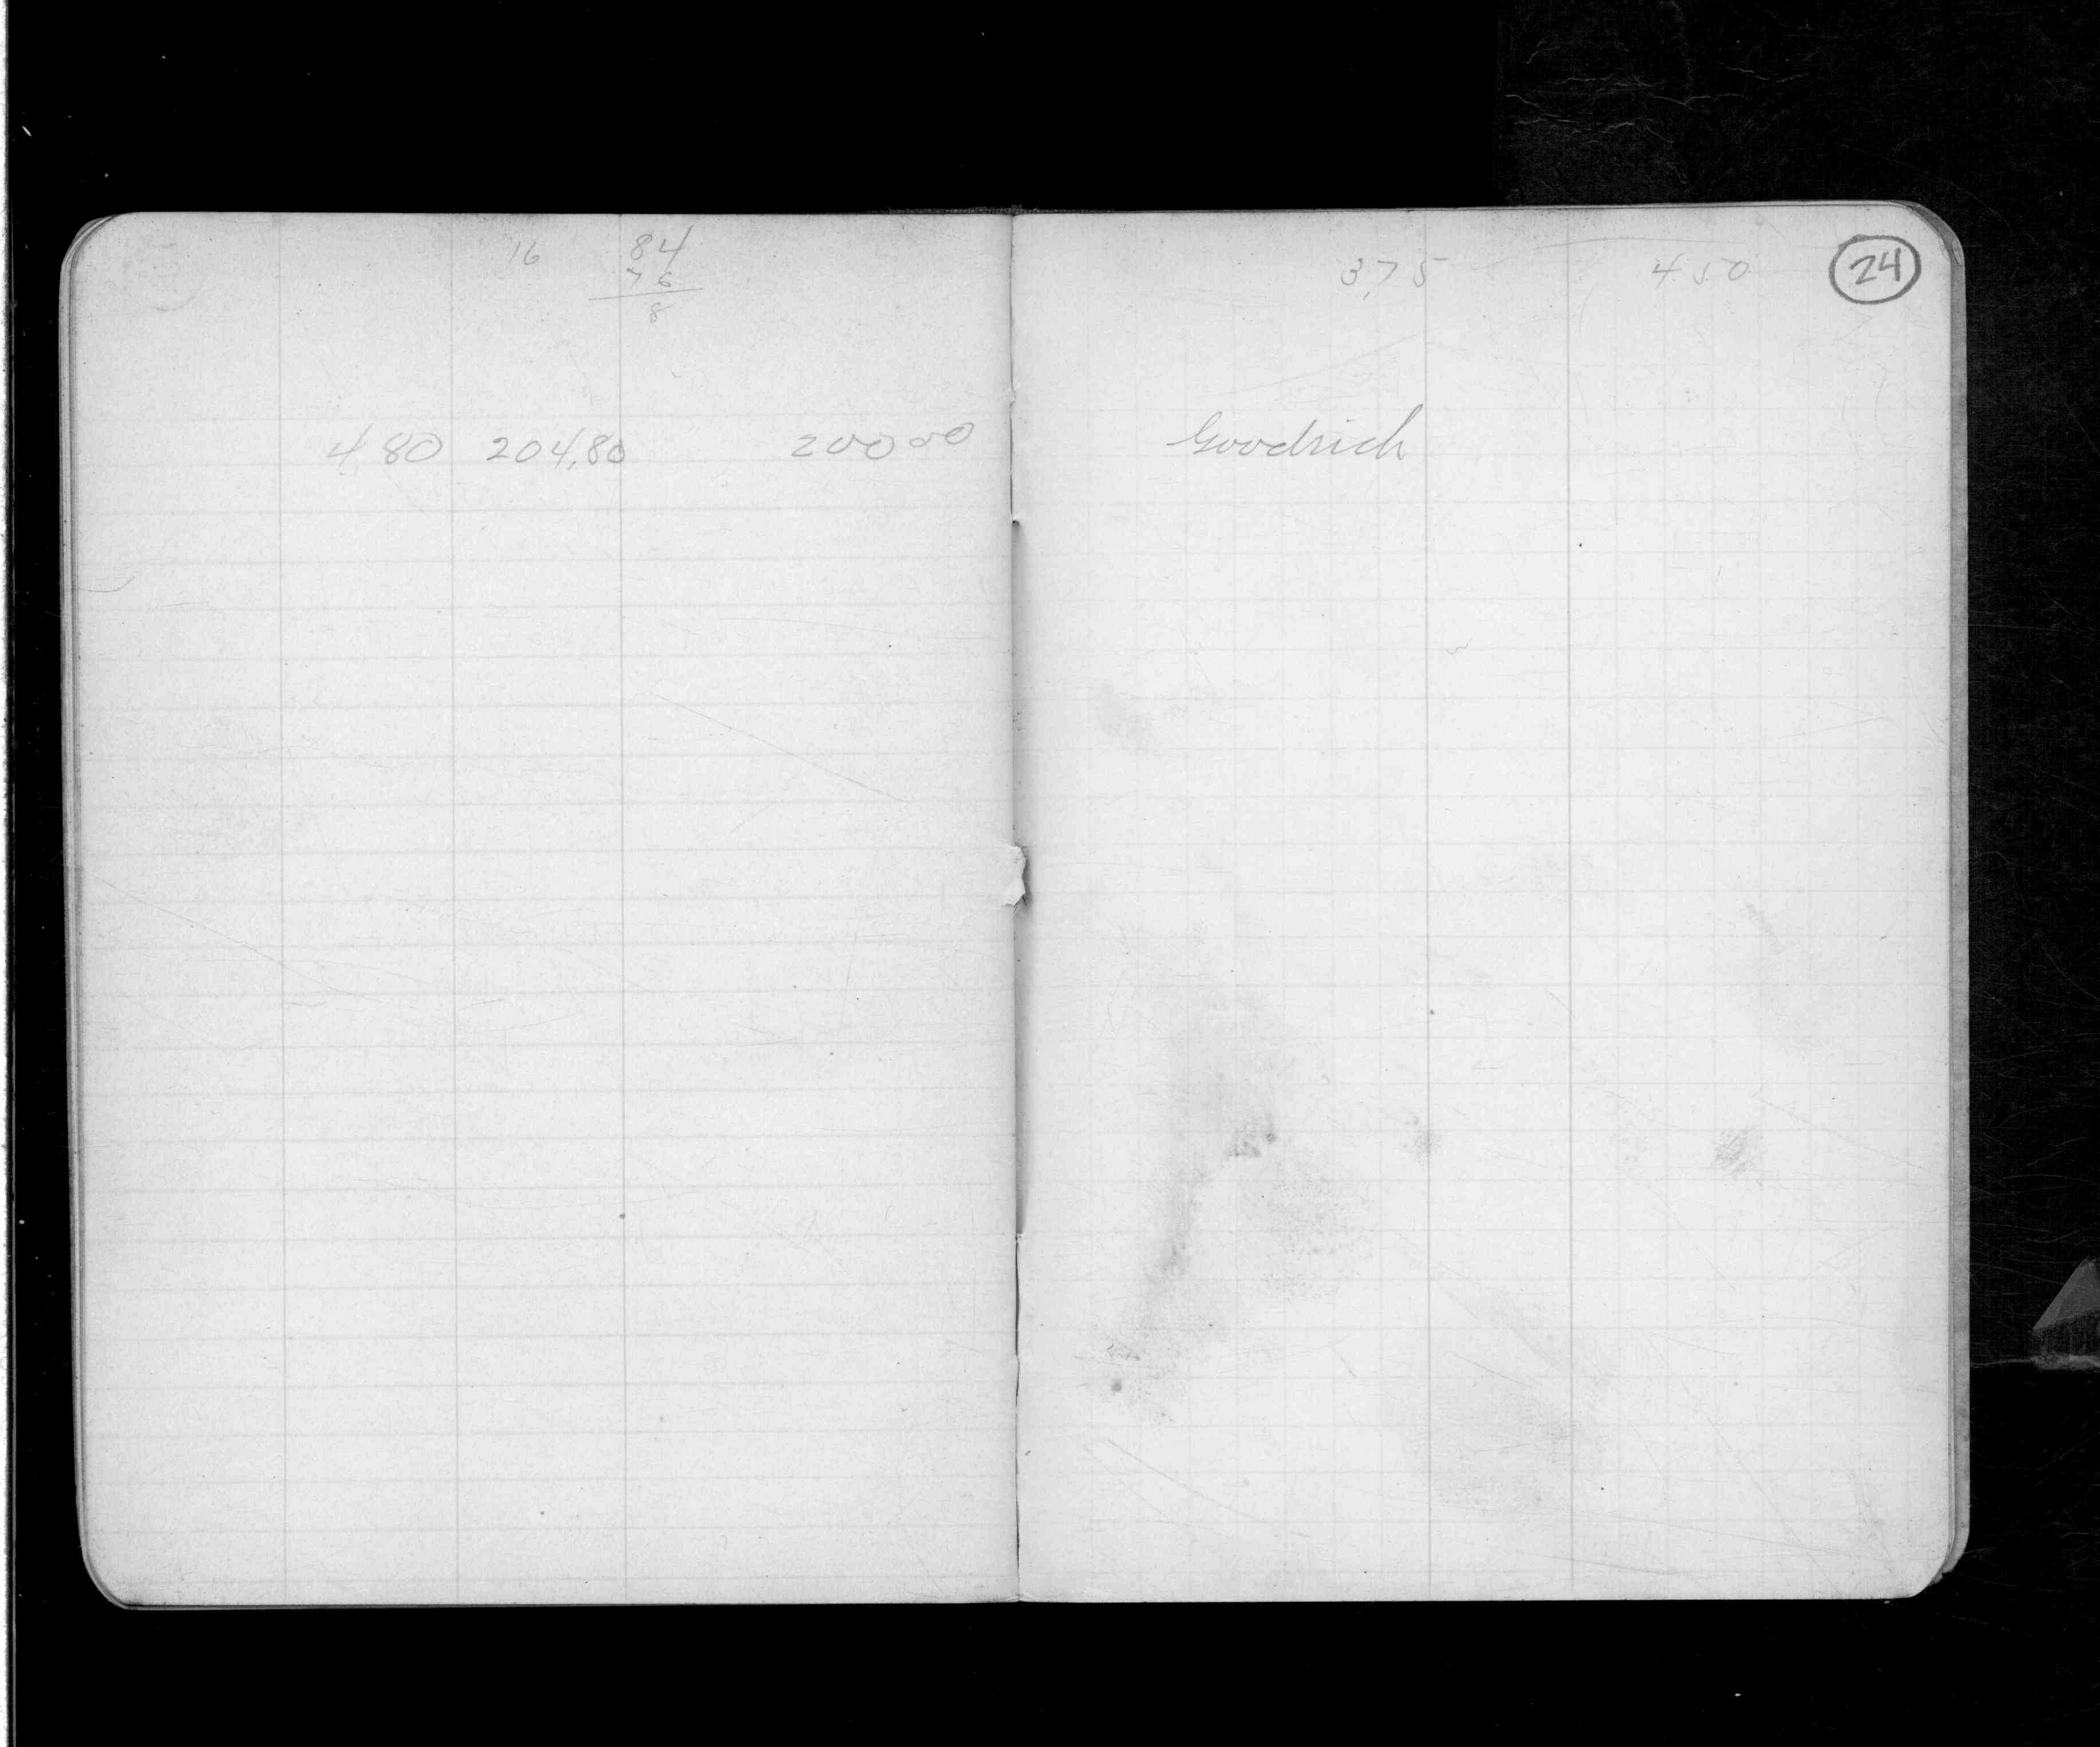 16 84
76
8
4.80 204.80 200 00
3.75 4 50 24
Goodrich